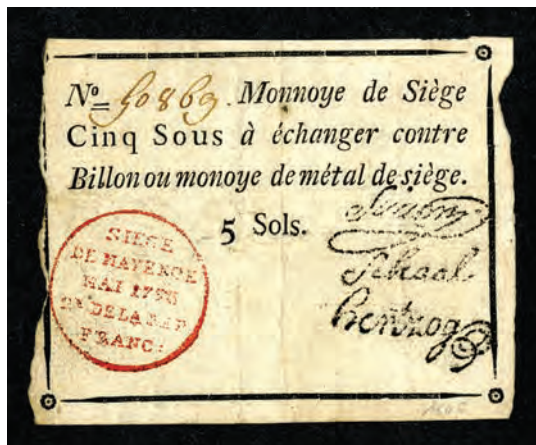 Nº 50869. Monnoye de Siège
Cinq Sous à échanger contre
Billon ou monoye de métal de siège.
5 Sols.
SIEGE
DE MAYENCE
MAI 1793
2ᵉ DE LA REP
FRANC:
Reubell
hentzog